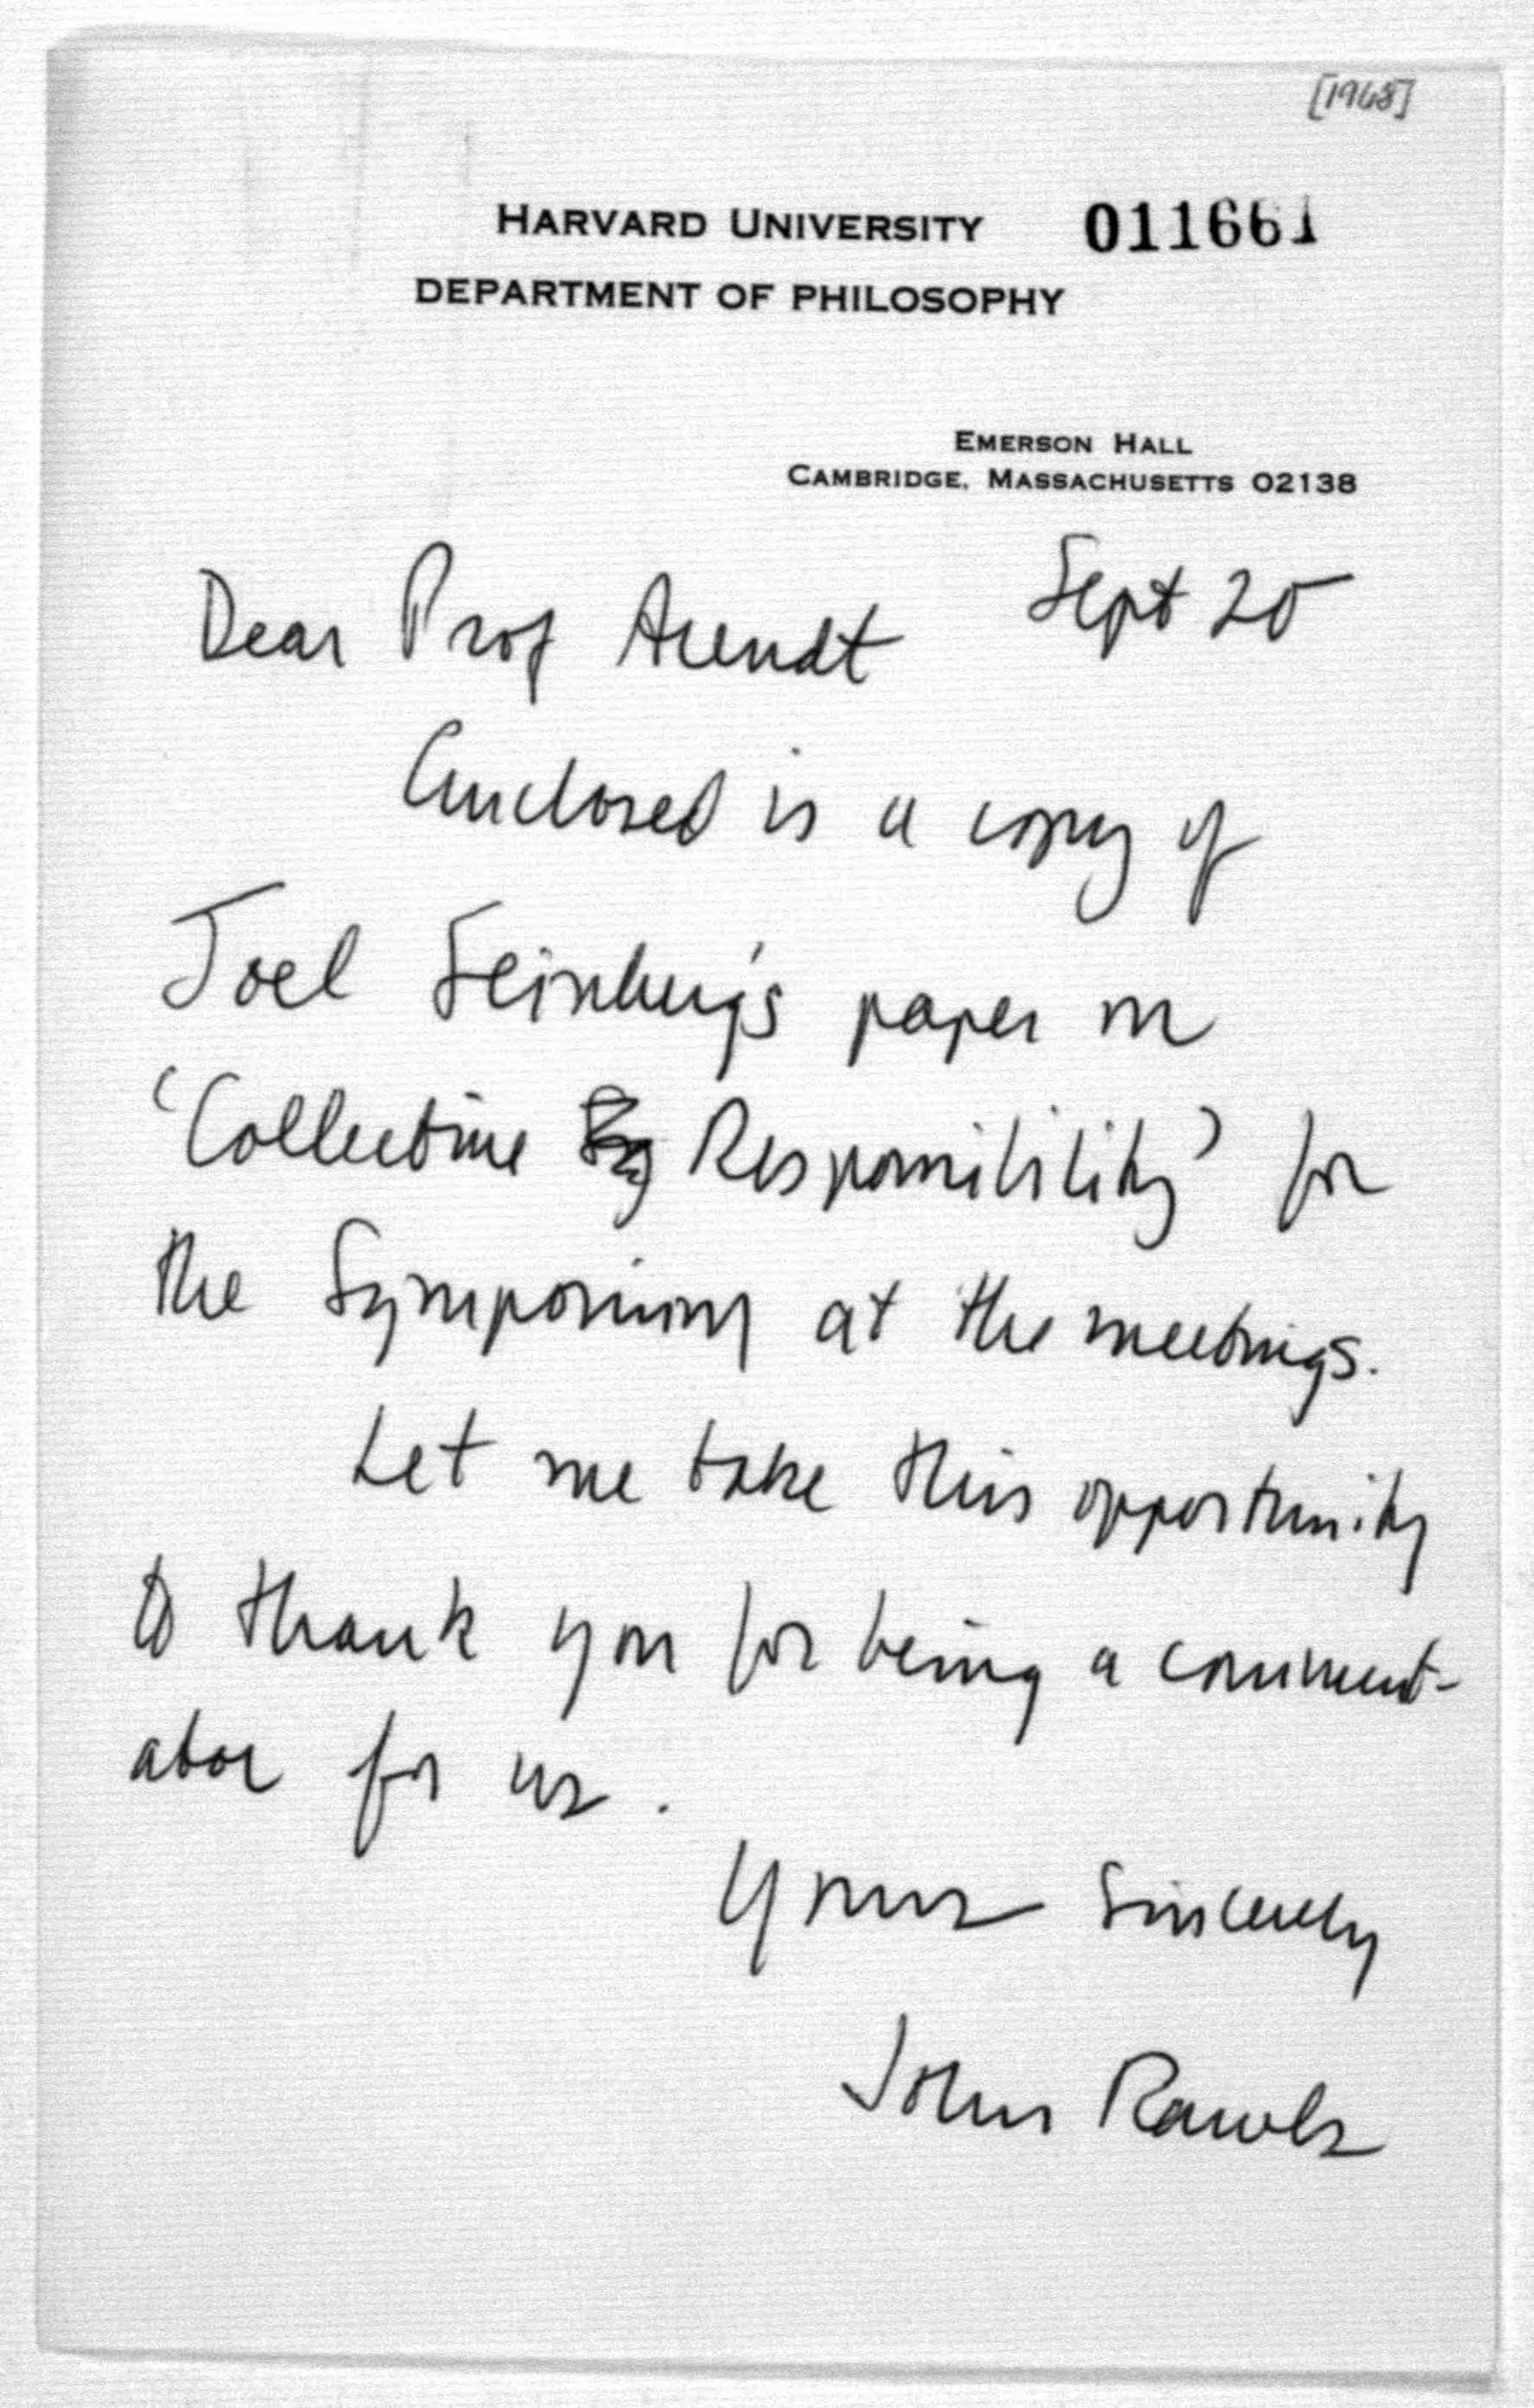 [1968]
HARVARD UNIVERSITY 011661
DEPARTMENT OF PHILOSOPHY
EMERSON HALL
CAMBRIDGE, MASSACHUSETTS 02138
Sept 20
Dear Prof Arendt
Enclosed is a copy of
Joel Feinberg's paper on
'Collective Responsibility' for
the Symposium at the meetings.
Let me take this opportunity
to thank you for being a comment-
ator for us.
Yours Sincerely
John Rawls